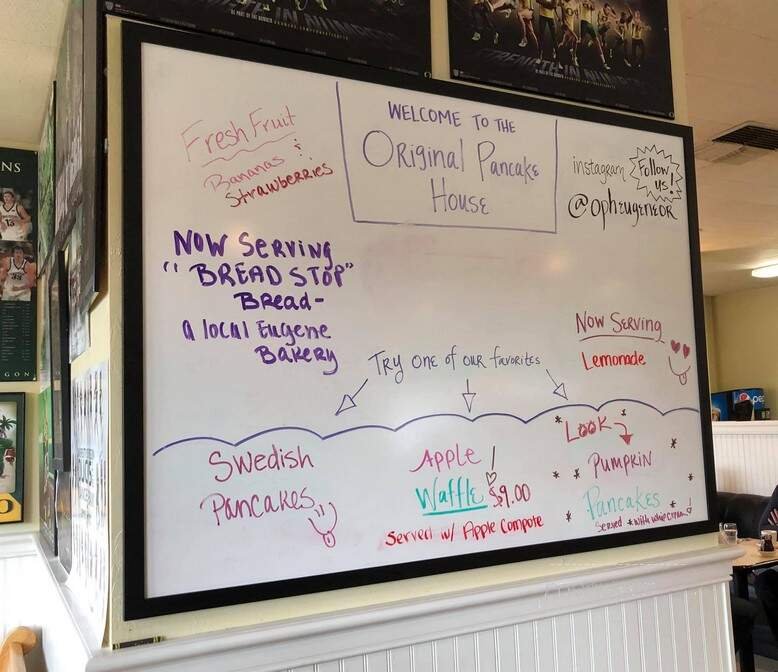 STRENGTH IN NUMBERS
STRENGTH IN NUMBERS
WELCOME TO THE
Original Pancake
House
Fresh Fruit
Bananas &
Strawberries
instagram
Follow
us!
@opheugeneOR
Now Serving
"BREAD STOP"
Bread-
a local Eugene
Bakery
Now Serving
Lemonade
Try one of our favorites
Swedish
Pancakes
Apple
Waffle $9.00
Served w/ Apple Compote
*LOOK*
Pumpkin
Pancakes
Served with whip cream!